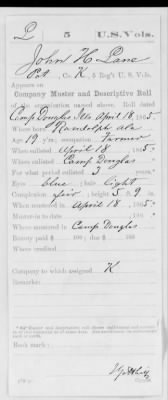 L | 5 | U.S. Vols.
John H Lane
Pvt, Co. K, 5 Reg't U. S. Vols.
Appears on
Company Muster and Descriptive Roll
of the organization named above. Roll dated
Camp Douglas Ills April 18, 1865.
Where born Randolph Ala
Age 19 y'rs; occupation Farmer
When enlisted April 18, 1865.
Where enlisted Camp Douglas
For what period enlisted 3 years.
Eyes blue; hair light
Complexion fair; height 5 ft. 9 in.
When mustered in April 18, 1865.
Muster-in to date
Where mustered in Camp Douglas
Bounty paid $ 100; due $ 100
Where credited
Company to which assigned K
Remarks:
Book mark:
Copyist.